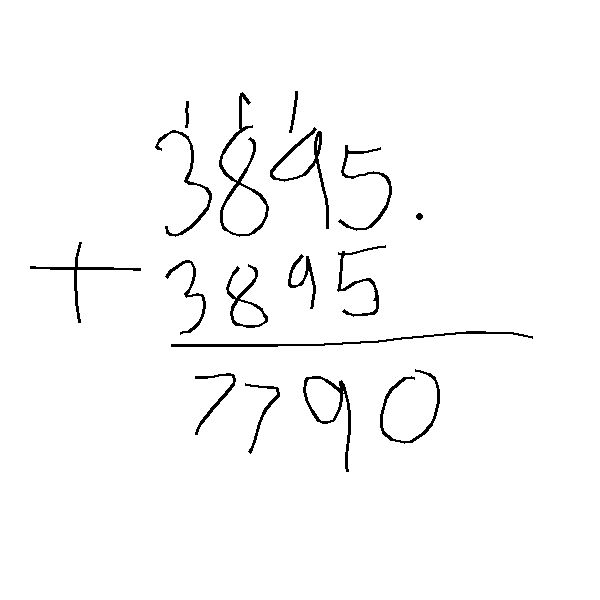 1 1 1
3895.
+ 3895
7790